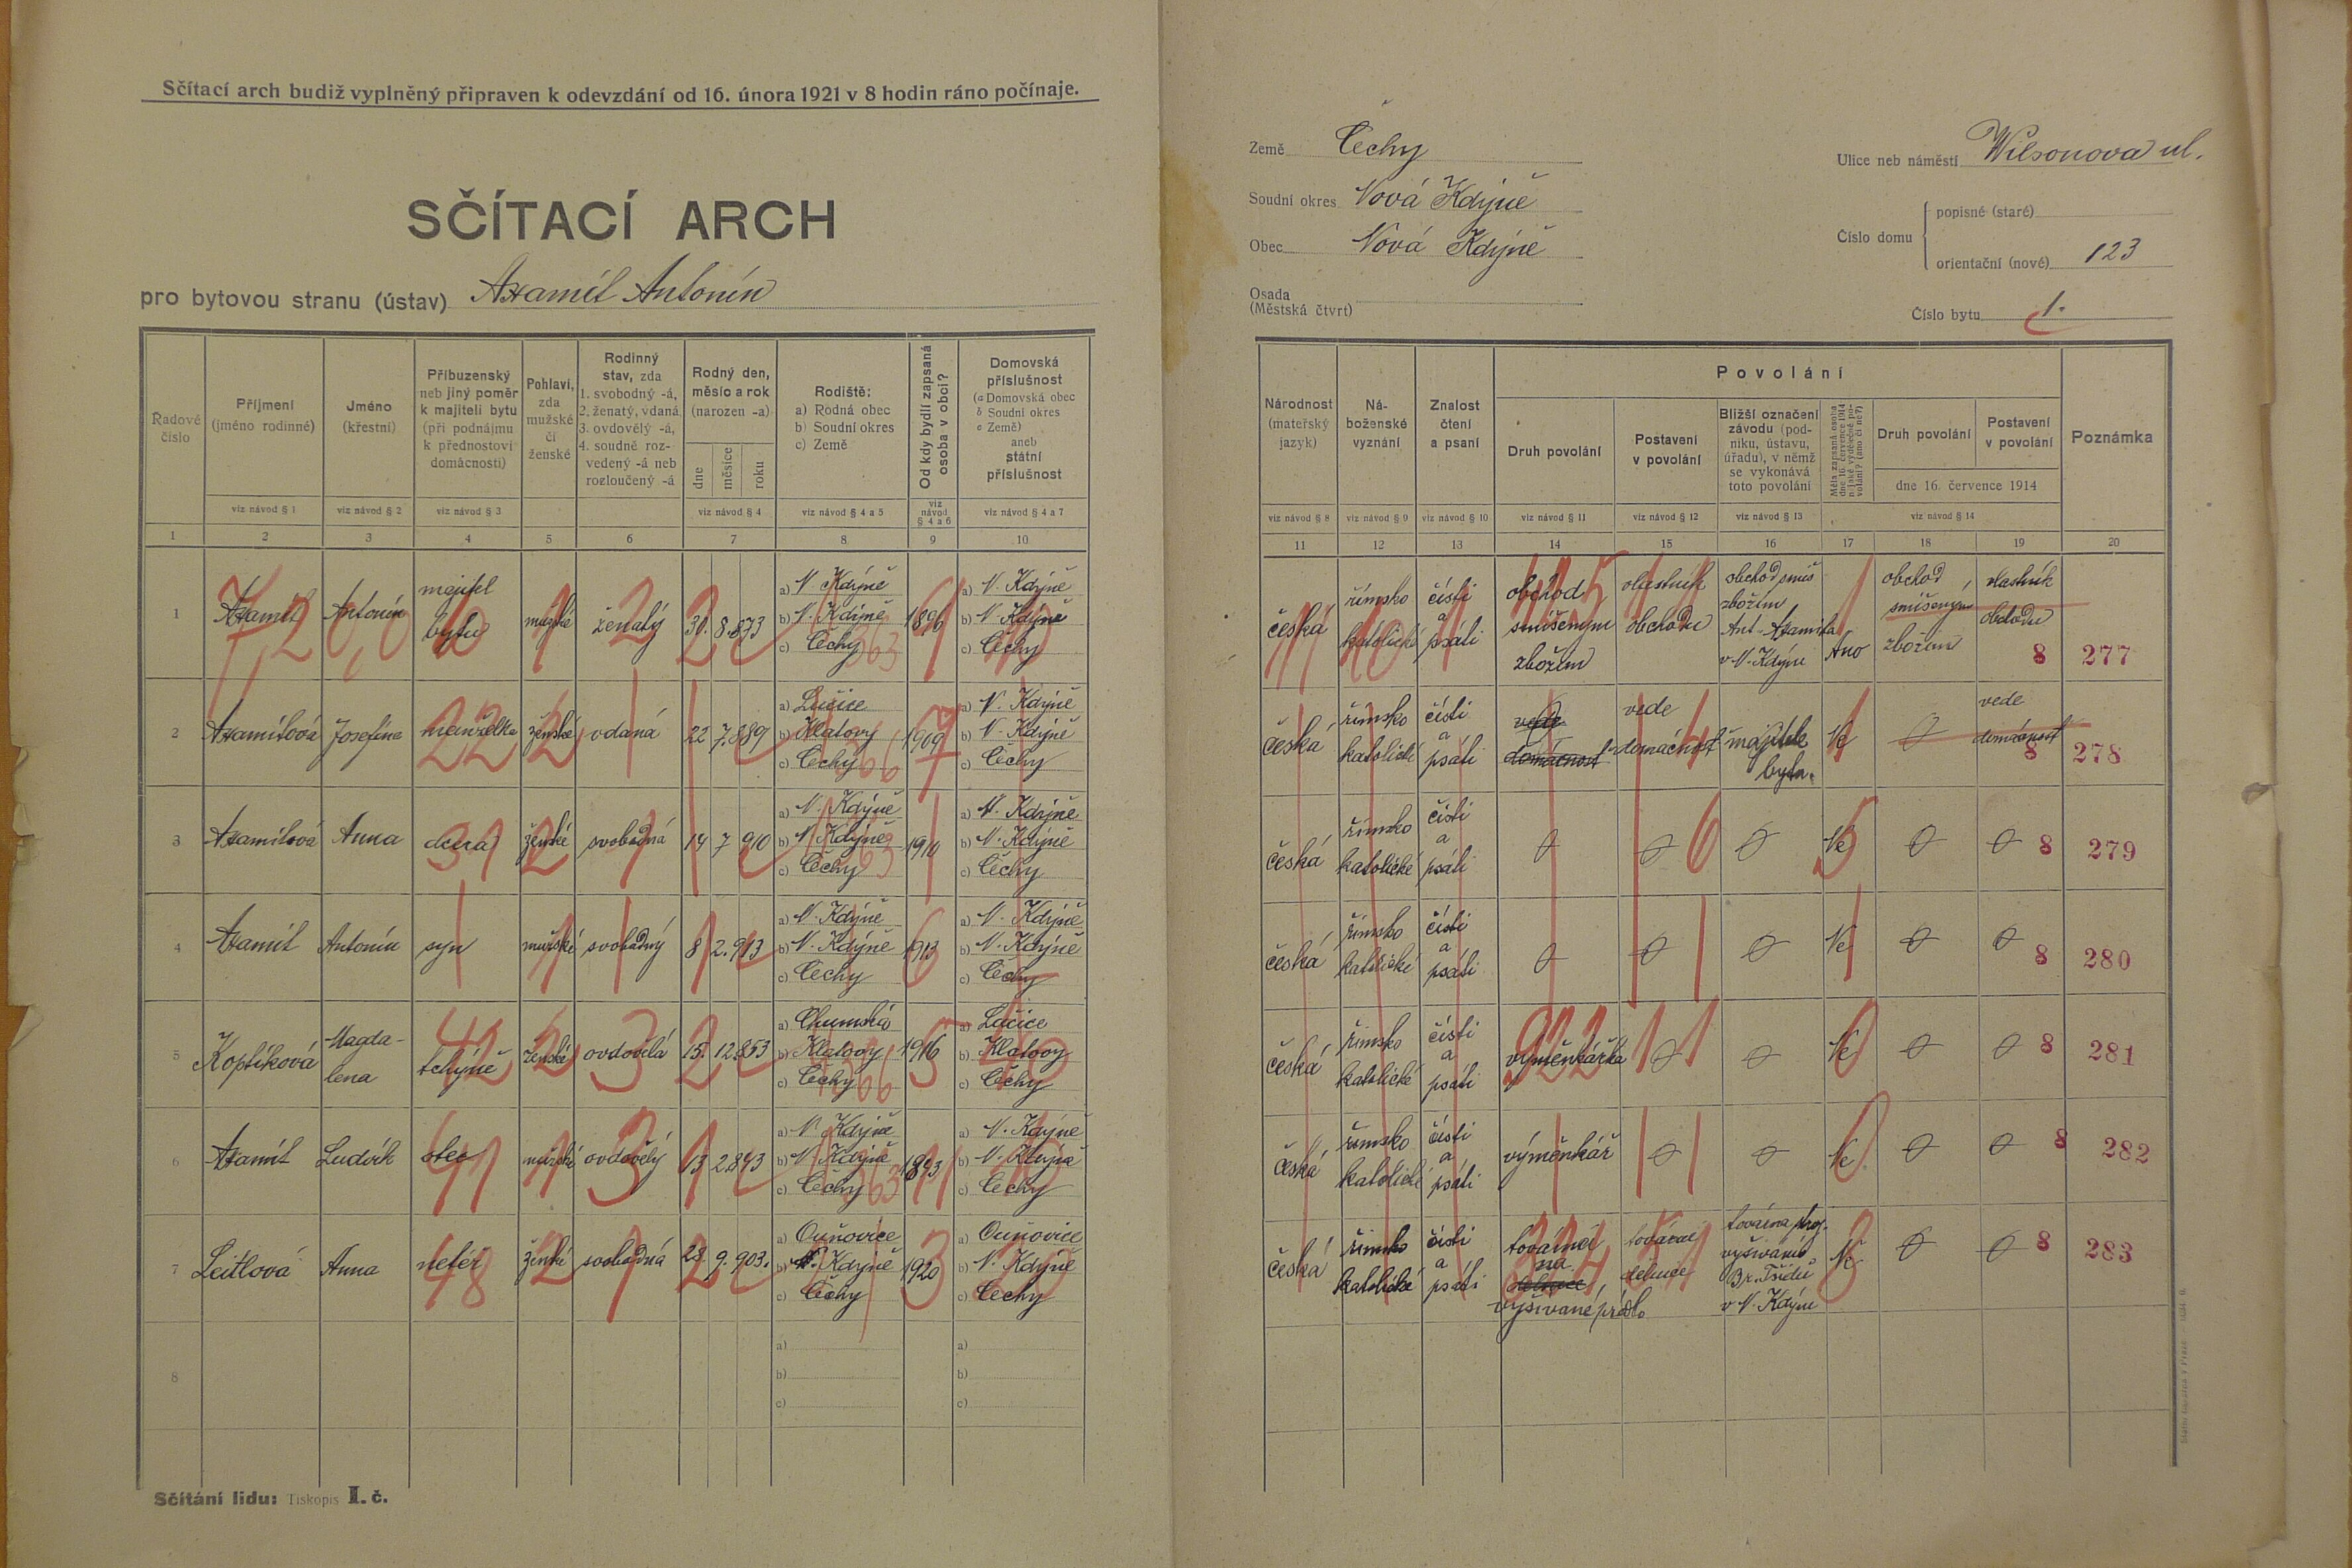 Sčítací arch budiž vyplněný připraven k odevzdání od 16. února 1921 v 8 hodin ráno počínaje.
SČÍTACÍ ARCH
pro bytovou stranu (ústav) Axamit Antonín
Země Čechy
Soudní okres Nová Kdýně
Obec Nová Kdýně
Osada
(Městská čtvrt)
Ulice neb náměstí Wilsonova ul.
Číslo domu
popisné (staré)
orientační (nové) 123
Číslo bytu 1.
Řadové číslo
Příjmení (jméno rodinné)
Jméno (křestní)
Příbuzenský neb jiný poměr k majiteli bytu (při podnájmu k přednostovi domácnosti)
Pohlaví, zda mužské či ženské
Rodinný stav, zda 1. svobodný -á, 2. ženatý, vdaná, 3. ovdovělý -á, 4. soudně rozvedený -á neb rozloučený -á
Rodný den, měsíc a rok (narozen -a)
dne měsíce roku
Rodiště: a) Rodná obec b) Soudní okres c) Země
Od kdy bydlí zapsaná osoba v obci?
Domovská příslušnost (a Domovská obec b Soudní okres c Země) aneb státní příslušnost
viz návod § 1 viz návod § 2 viz návod § 3 viz návod § 4 viz návod § 4 a 5 viz návod § 4 a 6 viz návod § 4 a 7
1 2 3 4 5 6 7 8 9 10
Národnost (mateřský jazyk)
Náboženské vyznání
Znalost čtení a psaní
Povolání
Druh povolání
Postavení v povolání
Bližší označení závodu (podniku, ústavu, úřadu), v němž se vykonává toto povolání
Měla zapsaná osoba dne 16. července 1914 nějaké výdělečné povolání? (ano či ne?)
Druh povolání
Postavení v povolání
dne 16. července 1914
Poznámka
viz návod § 8 viz návod § 9 viz návod § 10 viz návod § 11 viz návod § 12 viz návod § 13 viz návod § 14
11 12 13 14 15 16 17 18 19 20
1 Axamit Antonín majitel bytu mužské ženatý 30. 8. 873 a) N. Kdýně b) N. Kdýně c) Čechy 1896 a) N. Kdýně b) N. Kdýně c) Čechy
česká římsko katolické čísti a psáti obchod smíšeným zbožím vlastník obchodu obchod smíš zbožím Ant. Axamita v N. Kdýni Ano obchod smíšeným zbožím vlastník obchodu 8 277
2 Axamitová Josefina manželka ženské vdaná 22 7. 889 a) Lučice b) Klatovy c) Čechy 1909 a) N. Kdýně b) N. Kdýně c) Čechy
česká římsko katolické čísti a psáti vede domácnost vede domácnost majitele bytu. Ne vede domácnost 8 278
3 Axamitová Anna dcera ženské svobodná 14 7 910 a) N. Kdýně b) N. Kdýně c) Čechy 1910 a) N. Kdýně b) N. Kdýně c) Čechy
česká římsko katolické čísti a psáti Ne 8 279
4 Axamit Antonín syn mužské svobodný 8 2. 913 a) N. Kdýně b) N. Kdýně c) Čechy 1913 a) N. Kdýně b) N. Kdýně c) Čechy
česká římsko katolické čísti a psáti Ne 8 280
5 Koptíková Magdalena tchýně ženské ovdovělá 15. 12 853 a) Chumská b) Klatovy c) Čechy 1916 a) Lučice b) Klatovy c) Čechy
česká římsko katolické čísti a psáti výměnkářka Ne 8 281
6 Axamit Ludvík otec mužské ovdovělý 13 2. 843 a) N. Kdýně b) N. Kdýně c) Čechy 1843 a) N. Kdýně b) N. Kdýně c) Čechy
česká římsko katolické čísti a psáti výměnkář Ne 8 282
7 Leitlová Anna neteř ženské svobodná 28 9. 903. a) Ouňovice b) N. Kdýně c) Čechy 1920 a) Ouňovice b) N. Kdýně c) Čechy
česká římsko katolické čísti a psáti tovární na vyšívané prádlo tovární dělnice továrna vyšívání v N. Kdýni Ne 8 283
8 a) b) c) a) b) c)
Sčítání lidu: Tiskopis I. č.